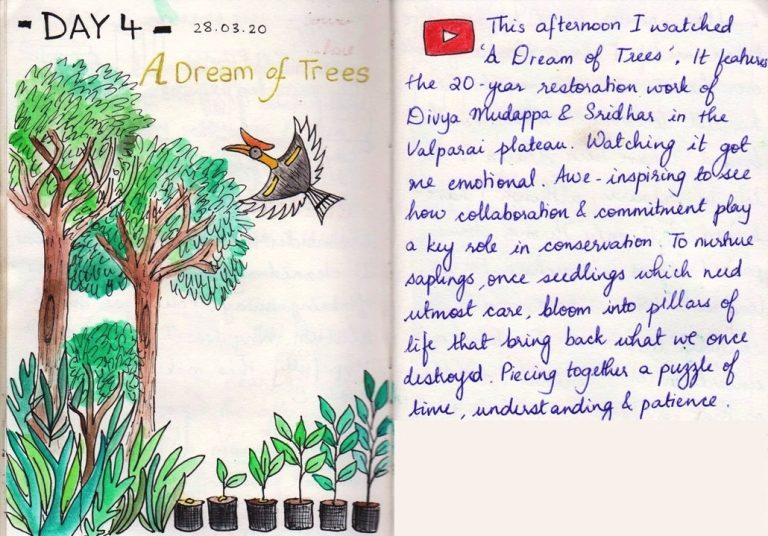 - DAY 4 -
28.03.20
A Dream of Trees
This afternoon I watched
'A Dream of Trees'. It features
the 20-year restoration work of
Divya Mudappa & Sridhar in the
Valparai plateau. Watching it got
me emotional. Awe-inspiring to see
how collaboration & commitment play
a key role in conservation. To nurture
saplings, once seedlings which need
utmost care, bloom into pillars of
life that bring back what we once
destroyed. Piecing together a puzzle of
time, understanding & patience.